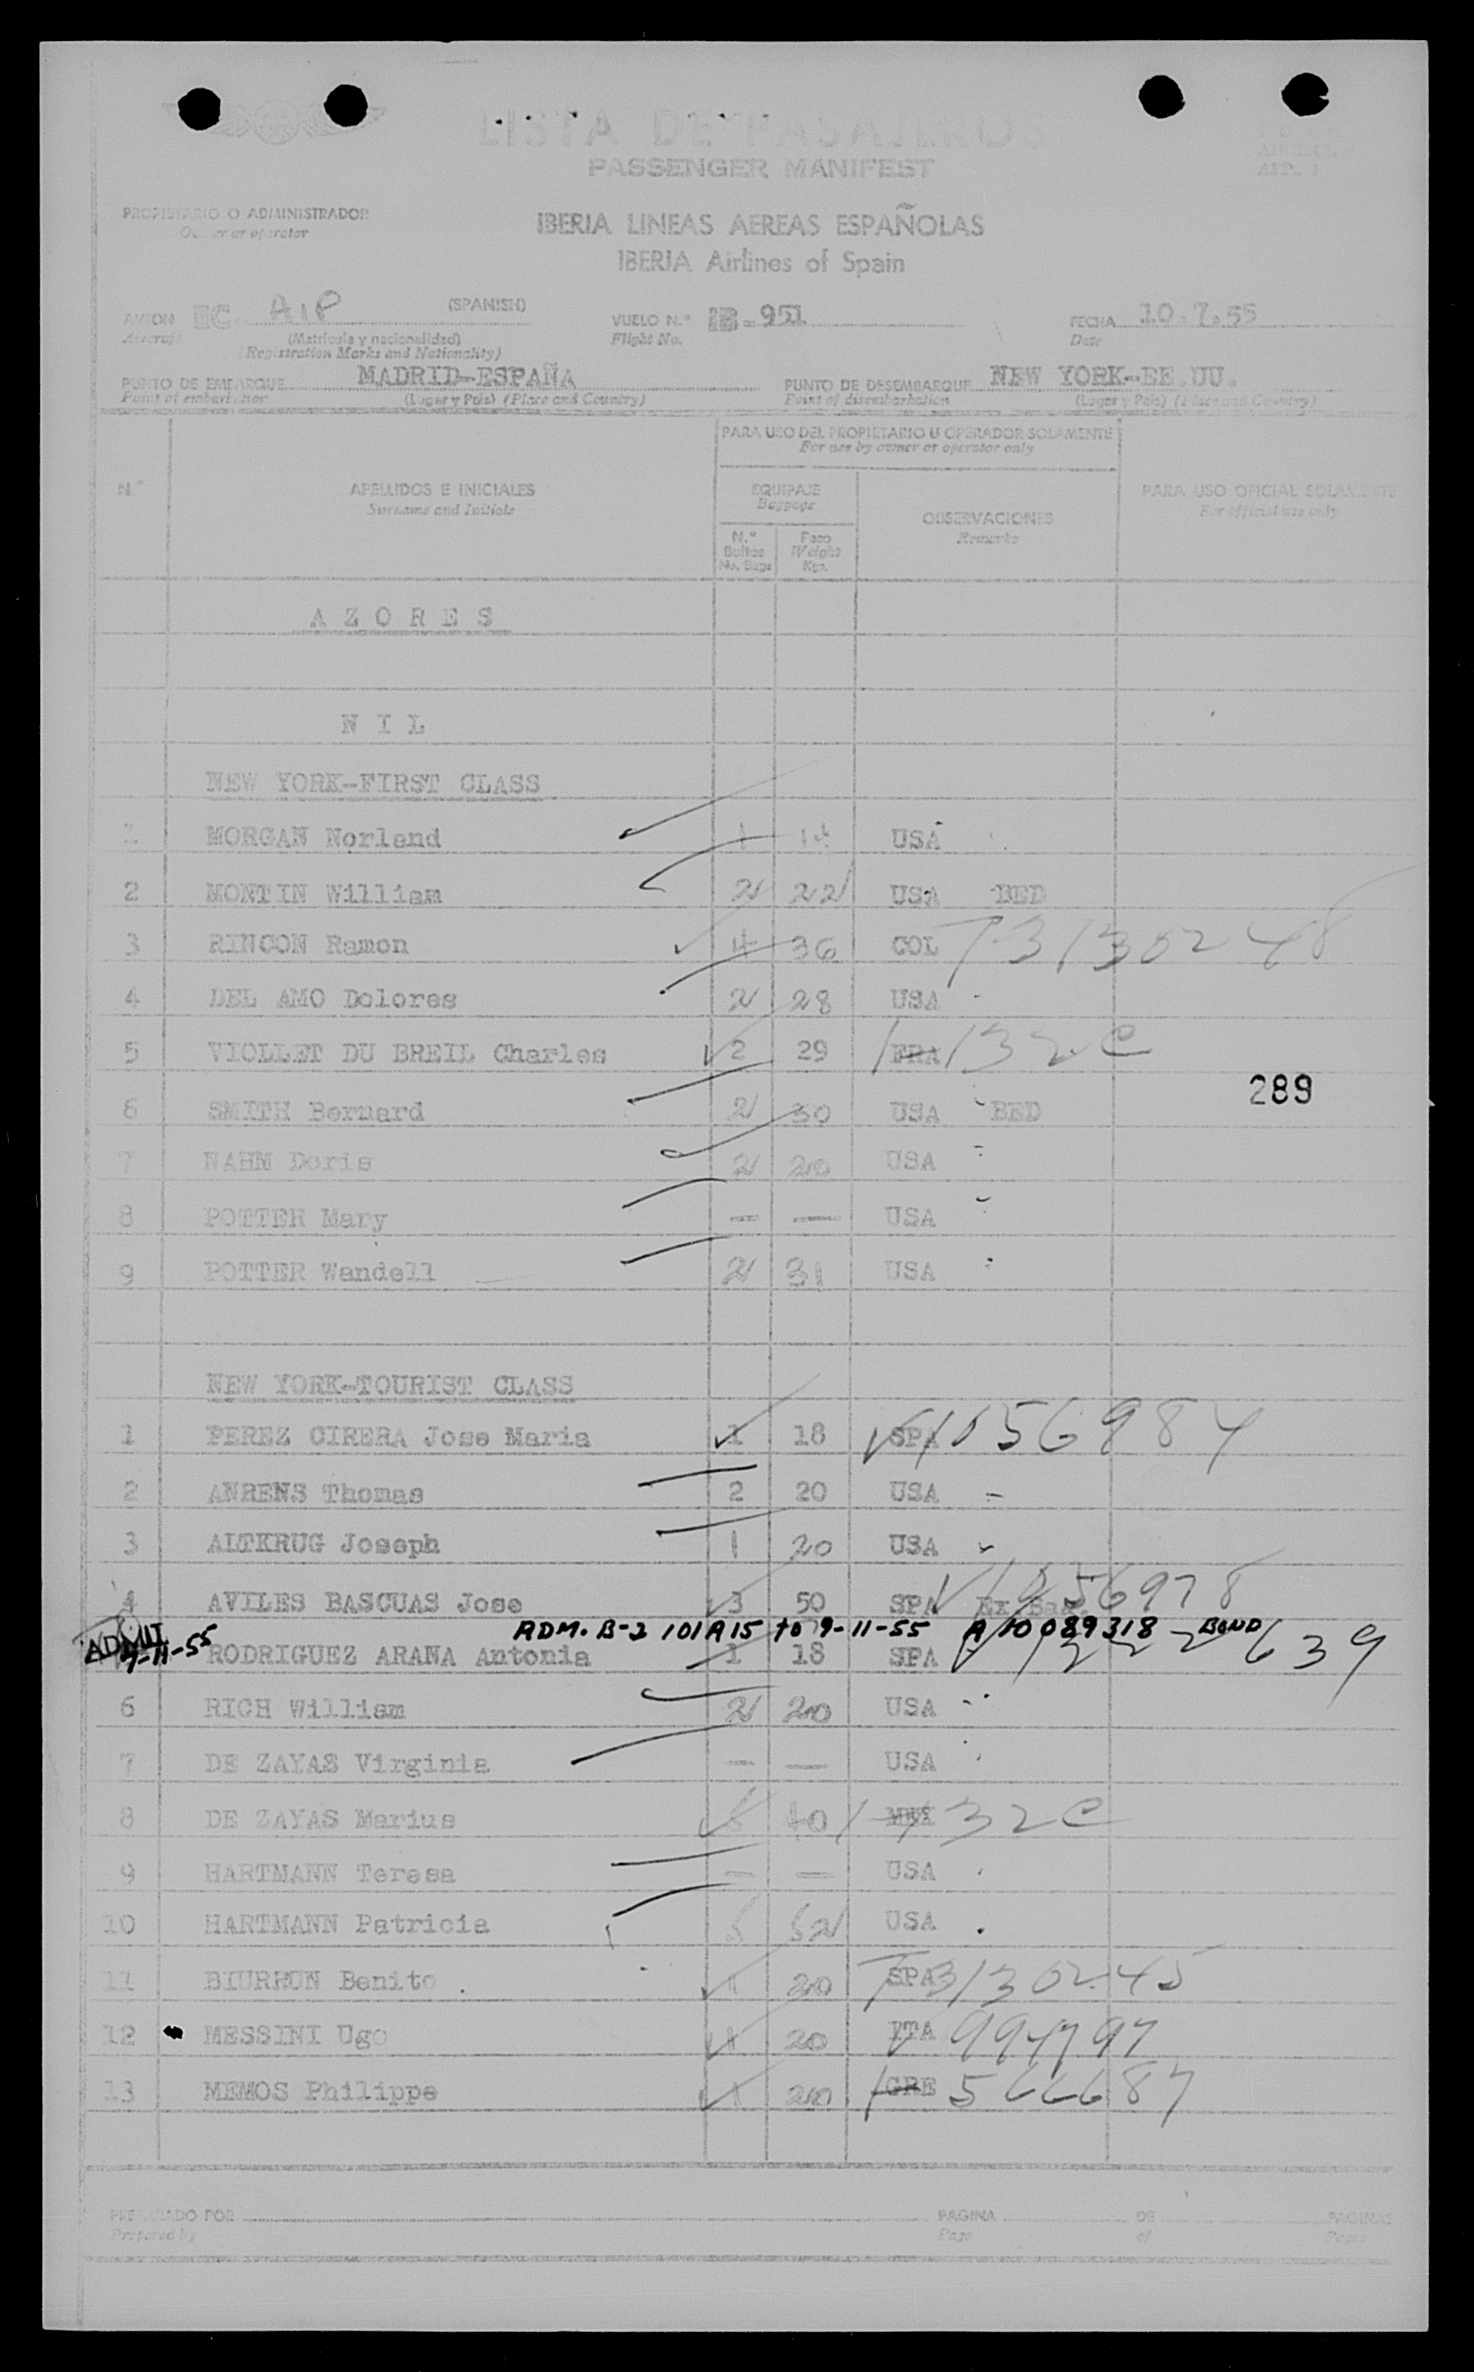 LISTA DE PASAJEROS
PASSENGER MANIFEST
PROPIETARIO O ADMINISTRADOR
Owner or operator
IBERIA LINEAS AEREAS ESPAÑOLAS
IBERIA Airlines of Spain
AVION EC- AIP (SPANISH) VUELO N.º IB-951 FECHA 10.7.55
Aircraft (Matrícula y nacionalidad) Flight No. Date
(Registration Marks and Nationality)
PUNTO DE EMBARQUE MADRID-ESPAÑA PUNTO DE DESEMBARQUE NEW YORK-EE.UU.
Point of embarkation (Lugar y País) (Place and Country) Point of disembarkation (Lugar y País) (Place and Country)
PARA USO DEL PROPIETARIO U OPERADOR SOLAMENTE
For use by owner or operator only
N.º APELLIDOS E INICIALES EQUIPAJE OBSERVACIONES PARA USO OFICIAL SOLAMENTE
Surname and Initials Baggage Remarks For official use only
N.º Bultos Peso
No. Bags Weight Kgs.
AZORES
NIL
NEW YORK-FIRST CLASS
1 MORGAN Norland 1 14 USA
2 MONTIN William 2 22 USA BED
3 RINCON Ramon 4 36 COL T-3130248
4 DEL AMO Dolores 2 28 USA
5 VIOLLET DU BREIL Charles 2 29 FRA 132 C
289
6 SMITH Bernard 2 30 USA BED
7 NAHM Doris 2 20 USA
8 POTTER Mary — — USA
9 POTTER Wandell 2 31 USA
NEW YORK-TOURIST CLASS
1 PEREZ CIRERA Jose Maria 1 18 SPA V1056984
2 AHRENS Thomas 2 20 USA
3 ALTKRUG Joseph 1 20 USA
4 AVILES BASCUAS Jose 3 50 SPA Ex Bag. V1056978
ADM. B-2 101A15 to 9-11-55 A 10 089318 - BOND
ADMIT
9-11-55
RODRIGUEZ ARANA Antonia 1 18 SPA V 1222639
6 RICH William 2 20 USA
7 DE ZAYAS Virginia — — USA
8 DE ZAYAS Marius 40 MEX 132 C
9 HARTMANN Teresa — — USA
10 HARTMANN Patricia 5 52 USA
11 BIURRUN Benito 1 20 SPA T3130245
12 MESSINI Ugo 1 20 ITA V 994797
13 MEMOS Philippe 1 20 GRE 566687
PREPARADO POR PAGINA DE PAGINAS
Prepared by Page of Pages